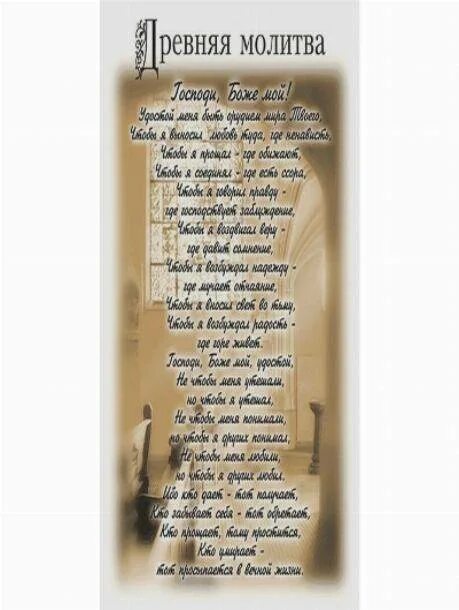 Древняя молитва
Господи, Боже мой!
Удостой меня быть орудием мира Твоего,
Чтобы я вносил любовь туда, где ненависть,
Чтобы я прощал - где обижают,
Чтобы я соединял - где есть ссора,
Чтобы я говорил правду -
где господствует заблуждение,
Чтобы я воздвигал веру -
где давит сомнение,
Чтобы я возбуждал надежду -
где мучает отчаяние,
Чтобы я вносил свет во тьму,
Чтобы я возбуждал радость -
где горе живет.
Господи, Боже мой, удостой,
Не чтобы меня утешали,
но чтобы я утешал,
Не чтобы меня понимали,
но чтобы я других понимал,
Не чтобы меня любили,
но чтобы я других любил.
Ибо кто дает - тот получает,
Кто забывает себя - тот обретает,
Кто прощает, тому простится,
Кто умирает -
тот просыпается в вечной жизни.